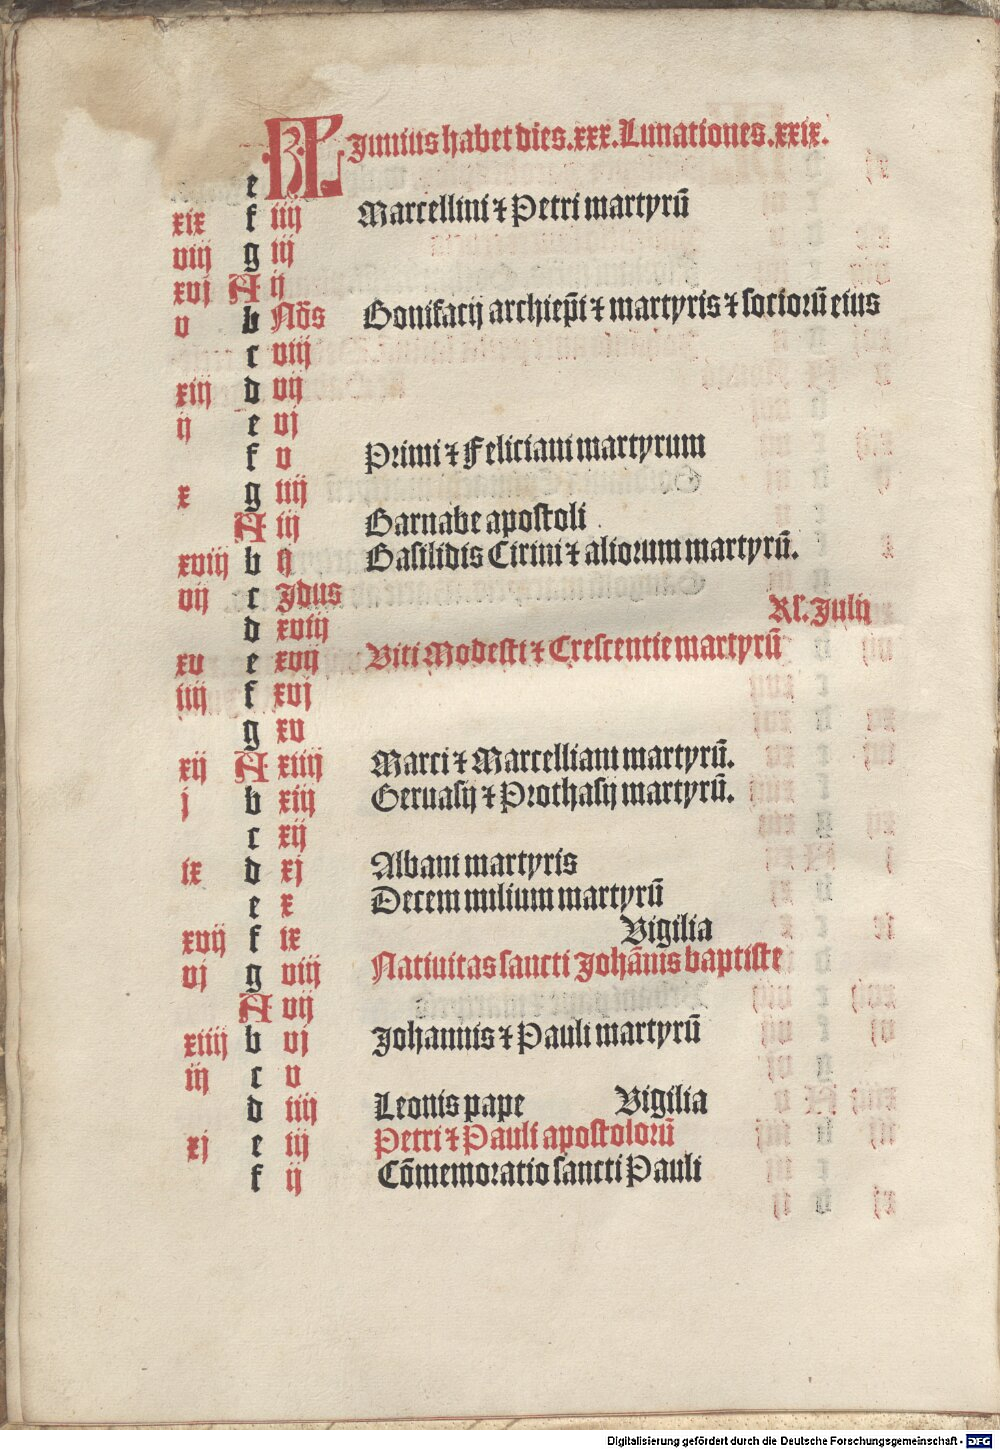 KL Junius habet dies.xxx.Lunationes.xxix.
e
xix f iiij Marcellini ⁊ Petri martyrū
viij g iij
xvj A ij
v b Nōs Bonifacij archiep̄i ⁊ martyris ⁊ sociorū eius
c viij
xiij d vij
ij e vj
f v Primi ⁊ Feliciani martyrum
x g iiij
A iij Barnabe apostoli
xviij b ij Basilidis Cirini ⁊ aliorum martyrū.
vij c Jdus
d xviij Kl. Julij
xv e xvij Viti Modesti ⁊ Crescentie martyrū
iiij f xvj
g xv
xij A xiiij Marci ⁊ Marcelliani martyrū.
j b xiij Geruasij ⁊ Prothasij martyrū.
c xij
ix d xj Albani martyris
e x Decem milium martyrū
xvij f ix Vigilia
vj g viij Natiuitas sancti Johānis baptiste
A vij
xiiij b vj Johannis ⁊ Pauli martyrū
iij c v
d iiij Leonis pape Vigilia
xj e iij Petri ⁊ Pauli apostolorū
f ij Cōmemoratio sancti Pauli
Digitalisierung gefördert durch die Deutsche Forschungsgemeinschaft - DFG